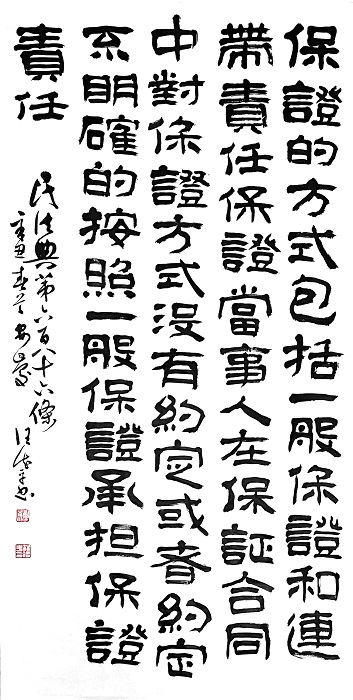 保證的方式包括一般保證和連
帶責任保證當事人在保証合同
中對保證方式没有約定或者約定
不明確的按照一般保證承担保證
責任
民法典第六百八十六條
辛丑春